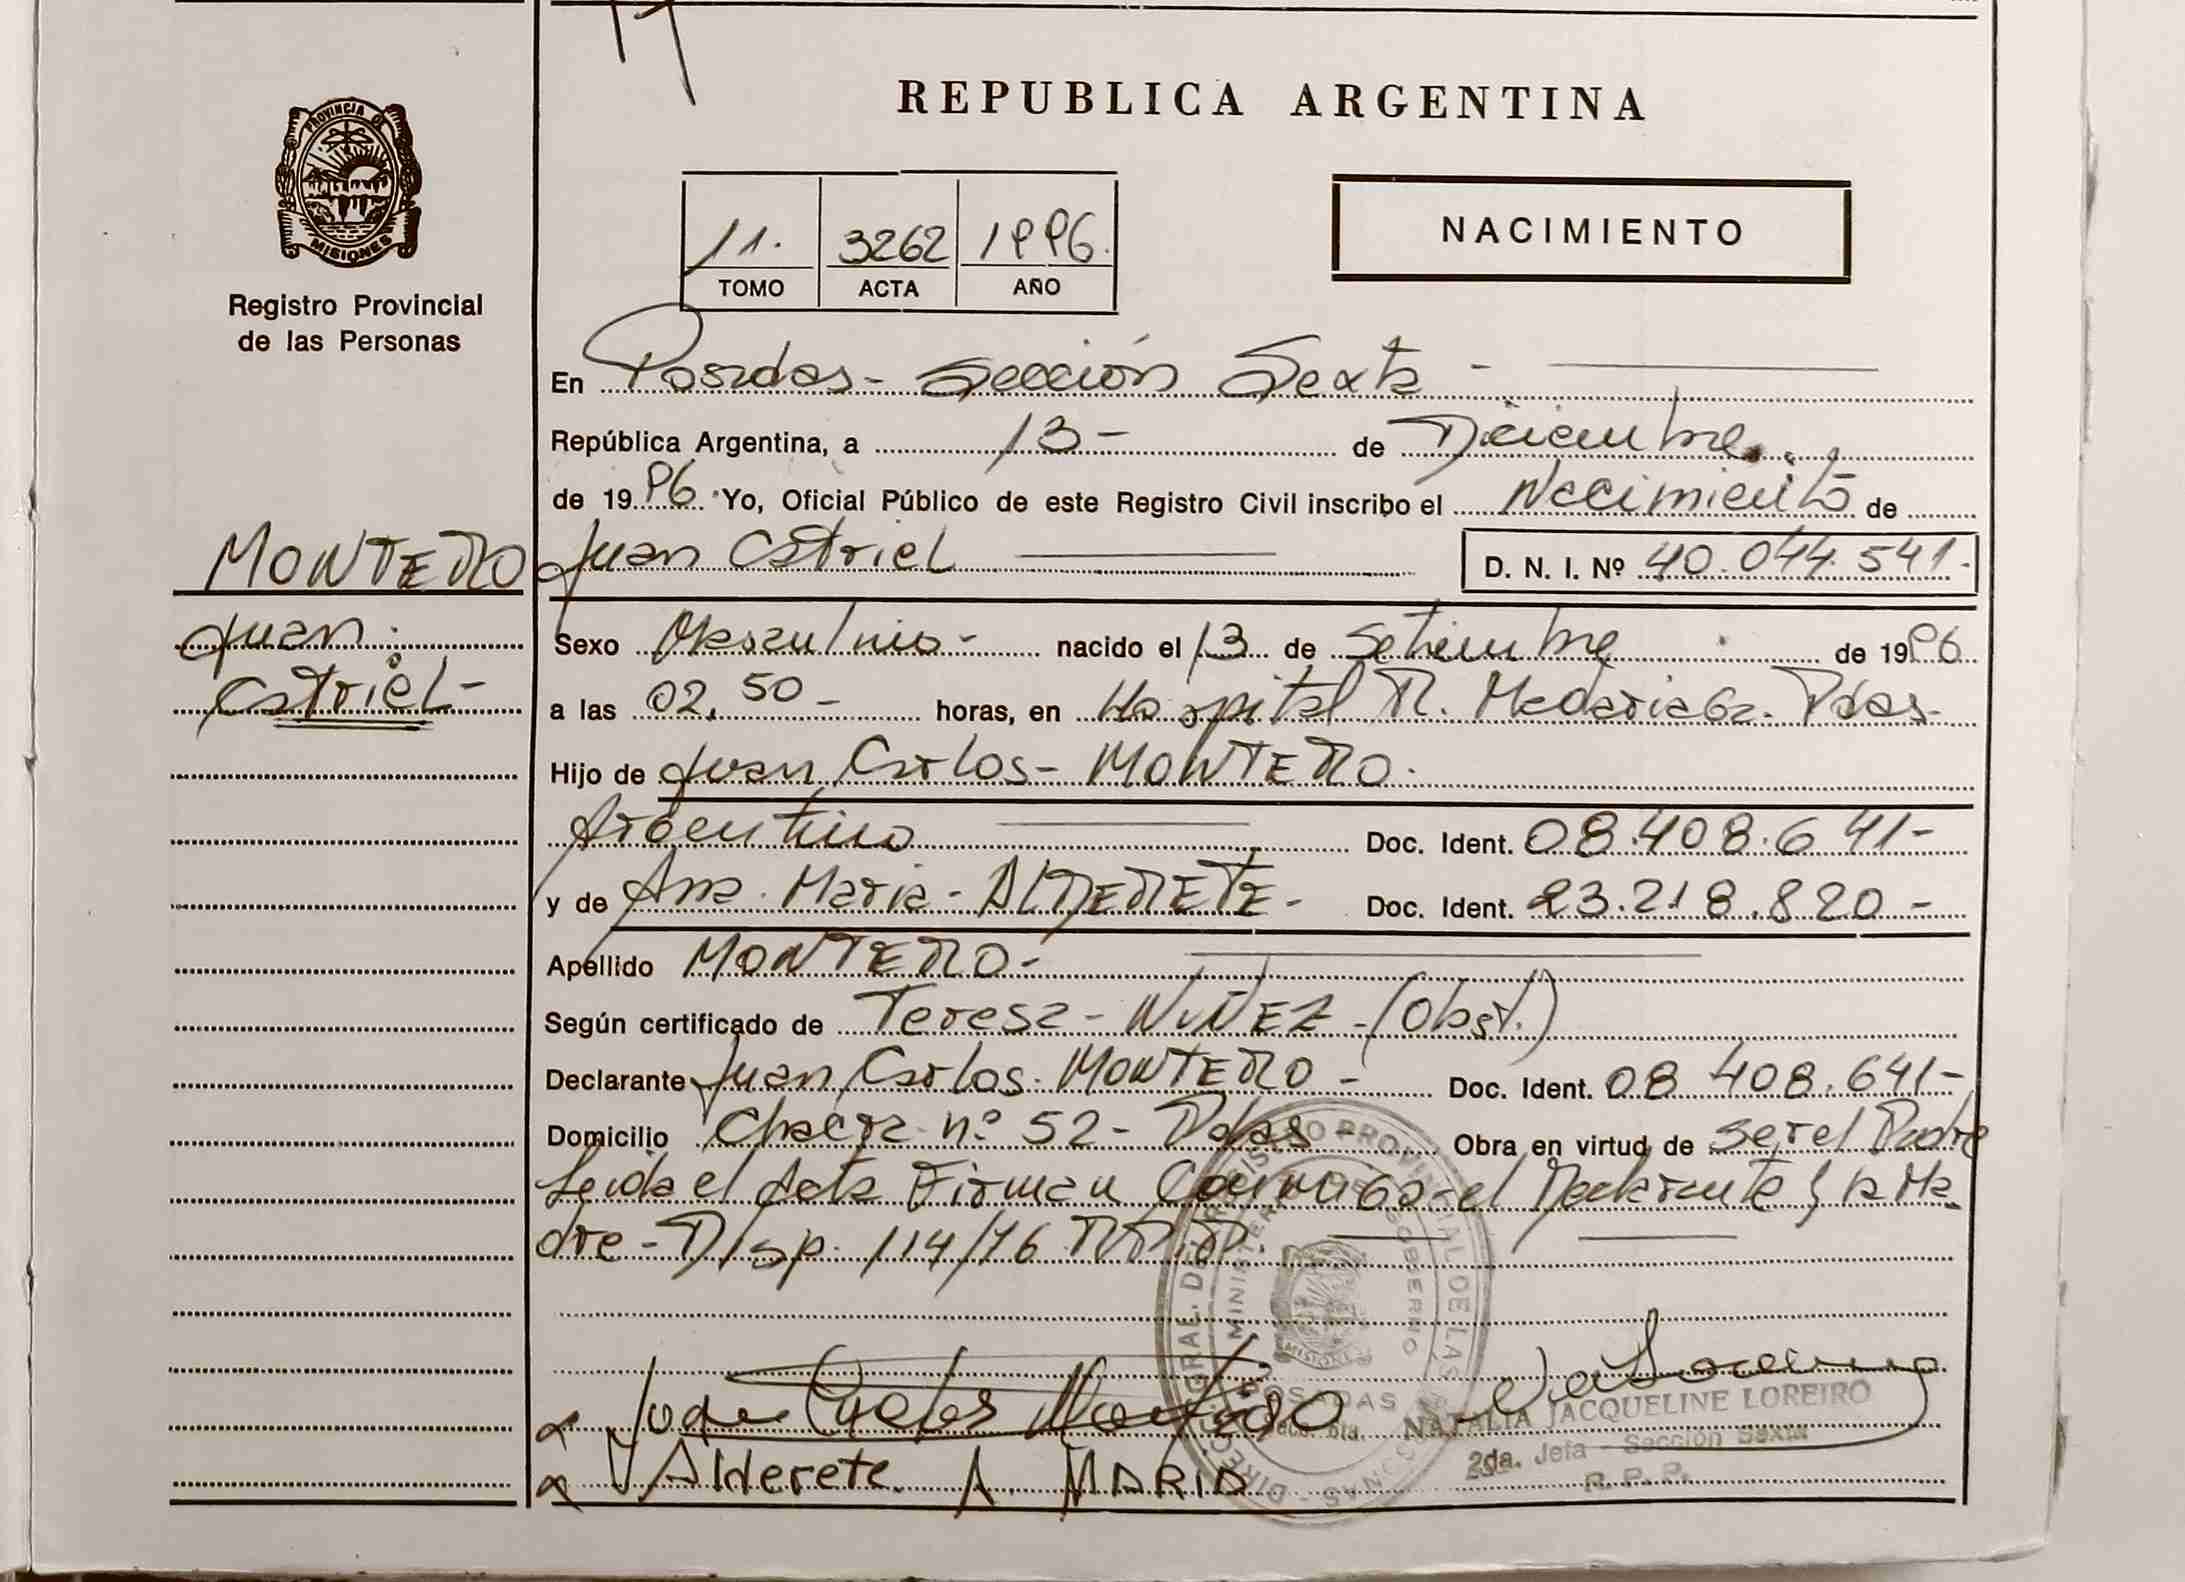 REPUBLICA ARGENTINA
PROVINCIA DE
MISIONES
Registro Provincial
de las Personas
11. 3262 1996.
TOMO ACTA AÑO
NACIMIENTO
En Posadas - Sección Sexta -
República Argentina, a 13 - de Diciembre
de 1996. Yo, Oficial Público de este Registro Civil inscribo el Nacimiento de
MONTERO
Juan
Catriel -
Juan Catriel D. N. I. Nº 40.044.541 -
Sexo Masculino - nacido el 13 de Setiembre de 1996
a las 02,50 - horas, en Hospital R. Madariaga. Pdas -
Hijo de Juan Carlos - MONTERO.
Argentino Doc. Ident. 08.408.641 -
y de Ana Maria - ALDERETE - Doc. Ident. 23.218.820 -
Apellido MONTERO -
Según certificado de Teresa - NUÑEZ - (Obst.)
Declarante Juan Carlos. MONTERO - Doc. Ident. 08 408.641 -
Domicilio Chacra nº 52 - Pdas - Obra en virtud de ser el Padre
Leida el Acta Firman Conmigo - el Declarante y la Ma
dre - Disp. 114/76 R.P.P.
DIRECC. GRAL. DEL REGISTRO PROVINCIAL DE LAS PERSONAS
MINISTERIO DE GOBIERNO
MISIONES
POSADAS
NATALIA JACQUELINE LOREIRO
2da. Jefa - Sección Sexta
R. P. P.
Alderete A. MARIA